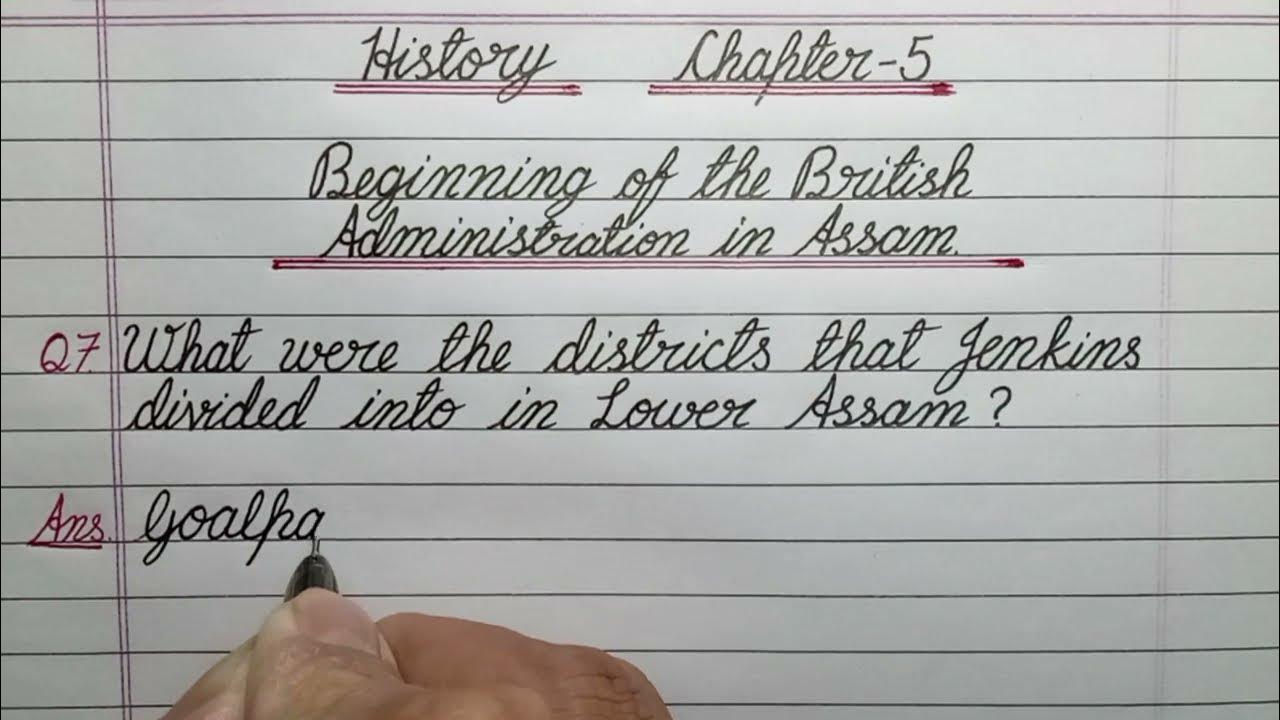 History Chapter-5
Beginning of the British
Administration in Assam.
Q7 What were the districts that Jenkins
divided into in Lower Assam?
Ans. Goalpa